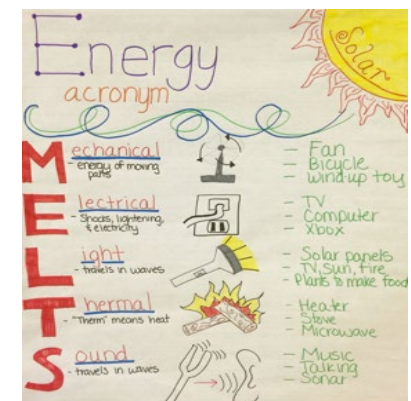 Energy
acronym
Solar
Mechanical
- energy of moving
parts
- Fan
- Bicycle
- wind-up toy
Electrical
- Shocks, lightening,
& electricity
- TV
- Computer
- Xbox
Light
- travels in waves
- Solar panels
- TV, Sun, fire
- Plants to make food
Thermal
- "Therm" means heat
- Heater
- Stove
- Microwave
Sound
- travels in waves
- Music
- Talking
- Sonar